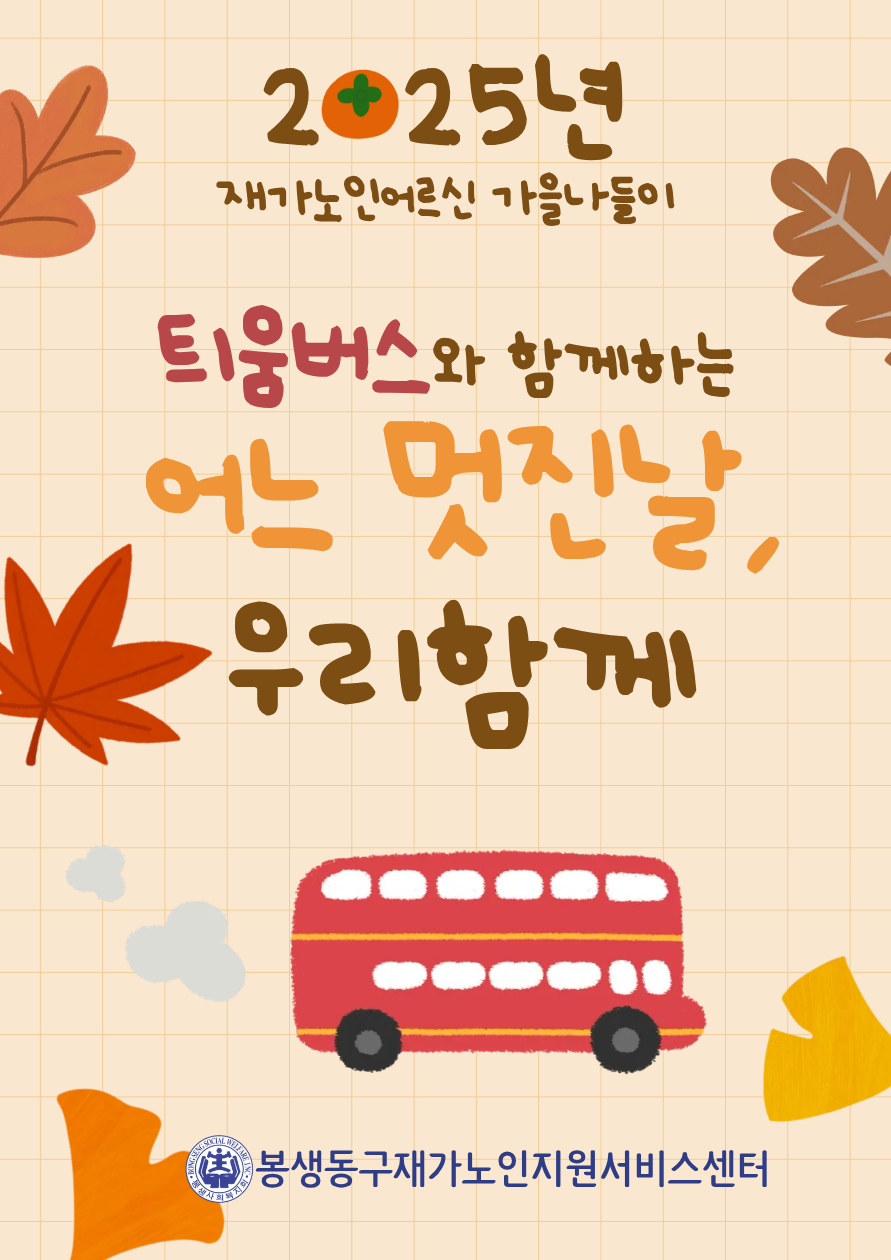 2025년
재가노인어르신 가을나들이
틔움버스와 함께하는
어느 멋진날,
우리함께
BONGSENG SOCIAL WELFARE INC.
봉생사회복지회
봉생동구재가노인지원서비스센터